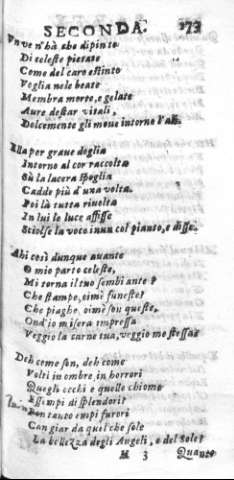 SECONDA. 173
Un ve n'hà che dipinto
Di celeste pietate
Come del caro estinto
Voglia nele beate
Membra morte, e gelate
Aure destar vitali,
Dolcemente gli moue intorno l'ali.
Ella per graue doglia
Intorno al cor raccolta
Sù la lacera spoglia
Cadde più d'una volta.
Poi là tutta riuolta
In lui le luce affisse
Sciolse la voce innun col pianto, e disse.
Ahi così dunque auante
O mio parto celeste,
Mi torna il tuo sembiante?
Che stampe, oimi funeste?
Che piaghe, oime son queste,
Ond'io misera impressa
Veggio la carne tua, veggio me stessa?
Deh come son, deh come
Volti in ombre, in horrori
Quegli occhi e quelle chiome
Essimpi di splendori?
Pon tanto empi furori
Cangiar da quel che sole
La bellezza degli Angeli, e del Sole?
M 3 Quante